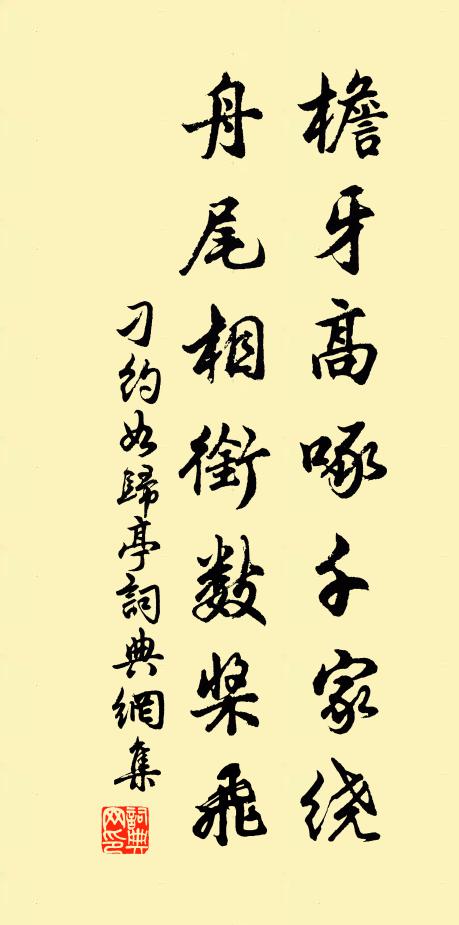 檐牙高啄千家绕
舟尾相銜数桨飛
刁約如歸亭詞典網集
詞典网印